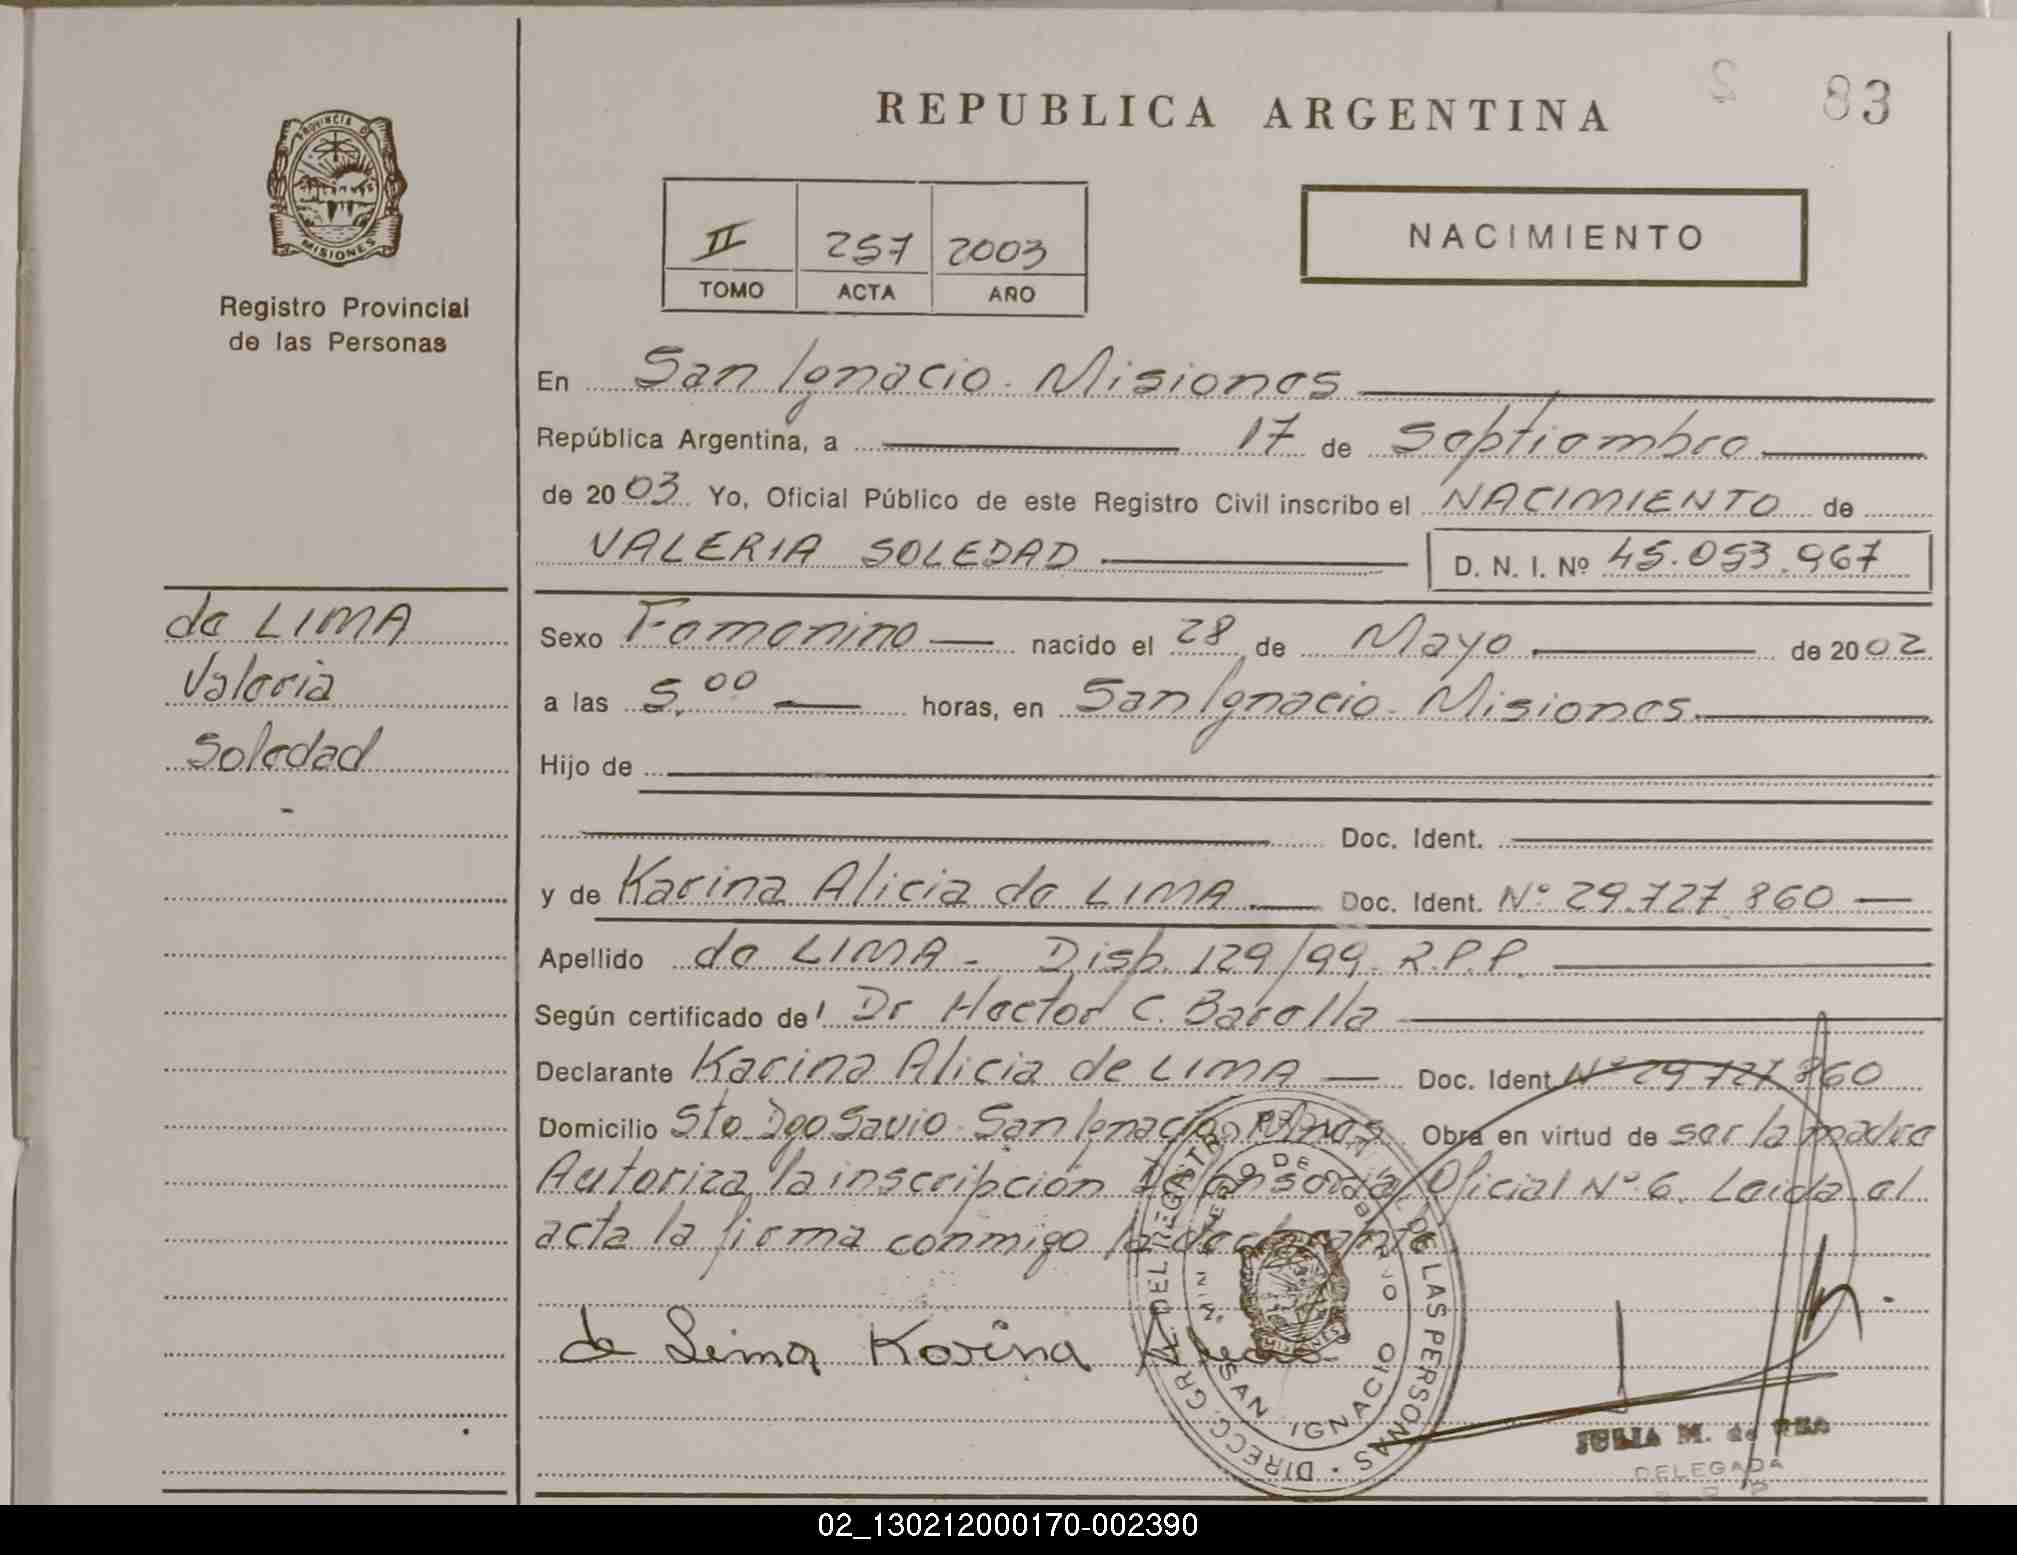 REPUBLICA ARGENTINA
83
PROVINCIA DE
MISIONES
Registro Provincial
de las Personas
II 257 2003
TOMO ACTA AÑO
NACIMIENTO
En San Ignacio - Misiones
República Argentina, a 17 de Septiembre
de 2003 Yo, Oficial Público de este Registro Civil inscribo el NACIMIENTO de
VALERIA SOLEDAD
D. N. I. Nº 45.053.967
de LIMA
Valeria
Soledad
-
Sexo Femenino nacido el 28 de Mayo de 2002
a las 5,00 horas, en San Ignacio - Misiones
Hijo de
Doc. Ident.
y de Karina Alicia de LIMA Doc. Ident. Nº 29.727.860
Apellido de LIMA - Disp. 129/99 R.P.P.
Según certificado de Dr Hector C. Barolla
Declarante Karina Alicia de LIMA Doc. Ident. Nº 29.727.860
Domicilio Sto Dgo Savio - San Ignacio Mnes Obra en virtud de ser la madre
Autoriza la inscripción Oficial Nº 6. Leida el
acta la firma conmigo la declarante
de Lima Karina Alicia
DIRECC. GRAL. DEL REGISTRO PROVINCIAL DE LAS PERSONAS
MINISTERIO DE GOBIERNO
SAN IGNACIO
JULIA M. de
DELEGADA
02_130212000170-002390